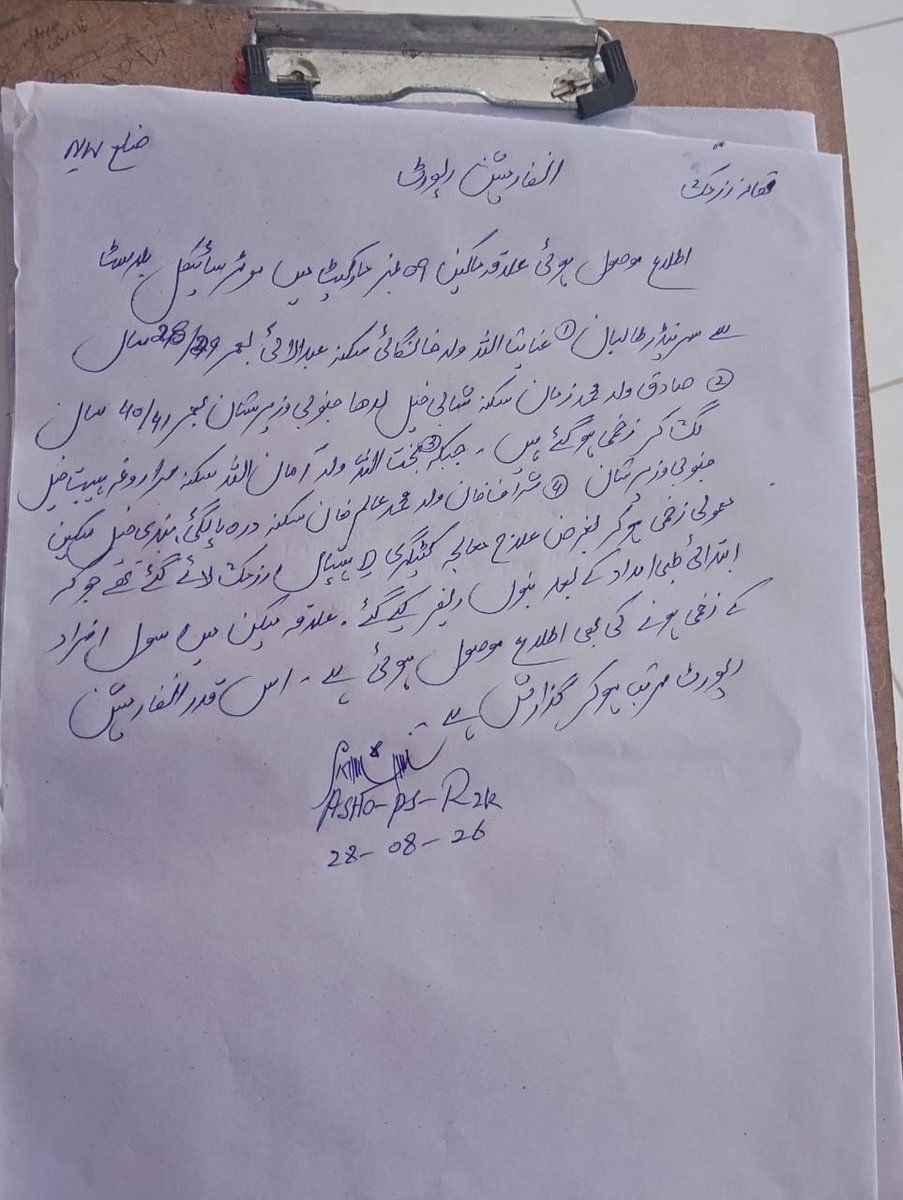 تھانہ رزمک انفارمیشن رپورٹ ضلع NW
اطلاع موصول ہوئی علاقہ مکین 09 نمبر مارکیٹ میں موٹر سائیکل بلاسٹ
سے سرنڈر طالبان ① عنایت اللہ ولد خانگائی سکنہ عبدالائی بعمر 28/29 سال
② صادق ولد محمد زمان سکنہ شمالی خیل لدھا جنوبی وزیرستان بعمر 40/41 سال
لگ کر زخمی ہو گئے ہیں ۔ جبکہ ③ اللہ ولد آمان اللہ سکنہ سراروغہ ہیبت خیل
جنوبی وزیرستان ④ شرافت خان ولد محمد عالم خان سکنہ درہ خیل مکین
معمولی زخمی ہو کر بغرض علاج معالجہ کٹیگری D ہسپتال رزمک لائے گئے تھے جو کہ
ابتدائی طبی امداد کے بعد بنوں ریفر کیے گئے ۔ علاقہ مکین میں سول افراد
کے زخمی ہونے کی بھی اطلاع موصول ہوئی ہے ۔ اس قدر انفارمیشن
رپورٹ مرتب ہو کر گذارش ہے
ASHO-PS-RZK
28-08-26